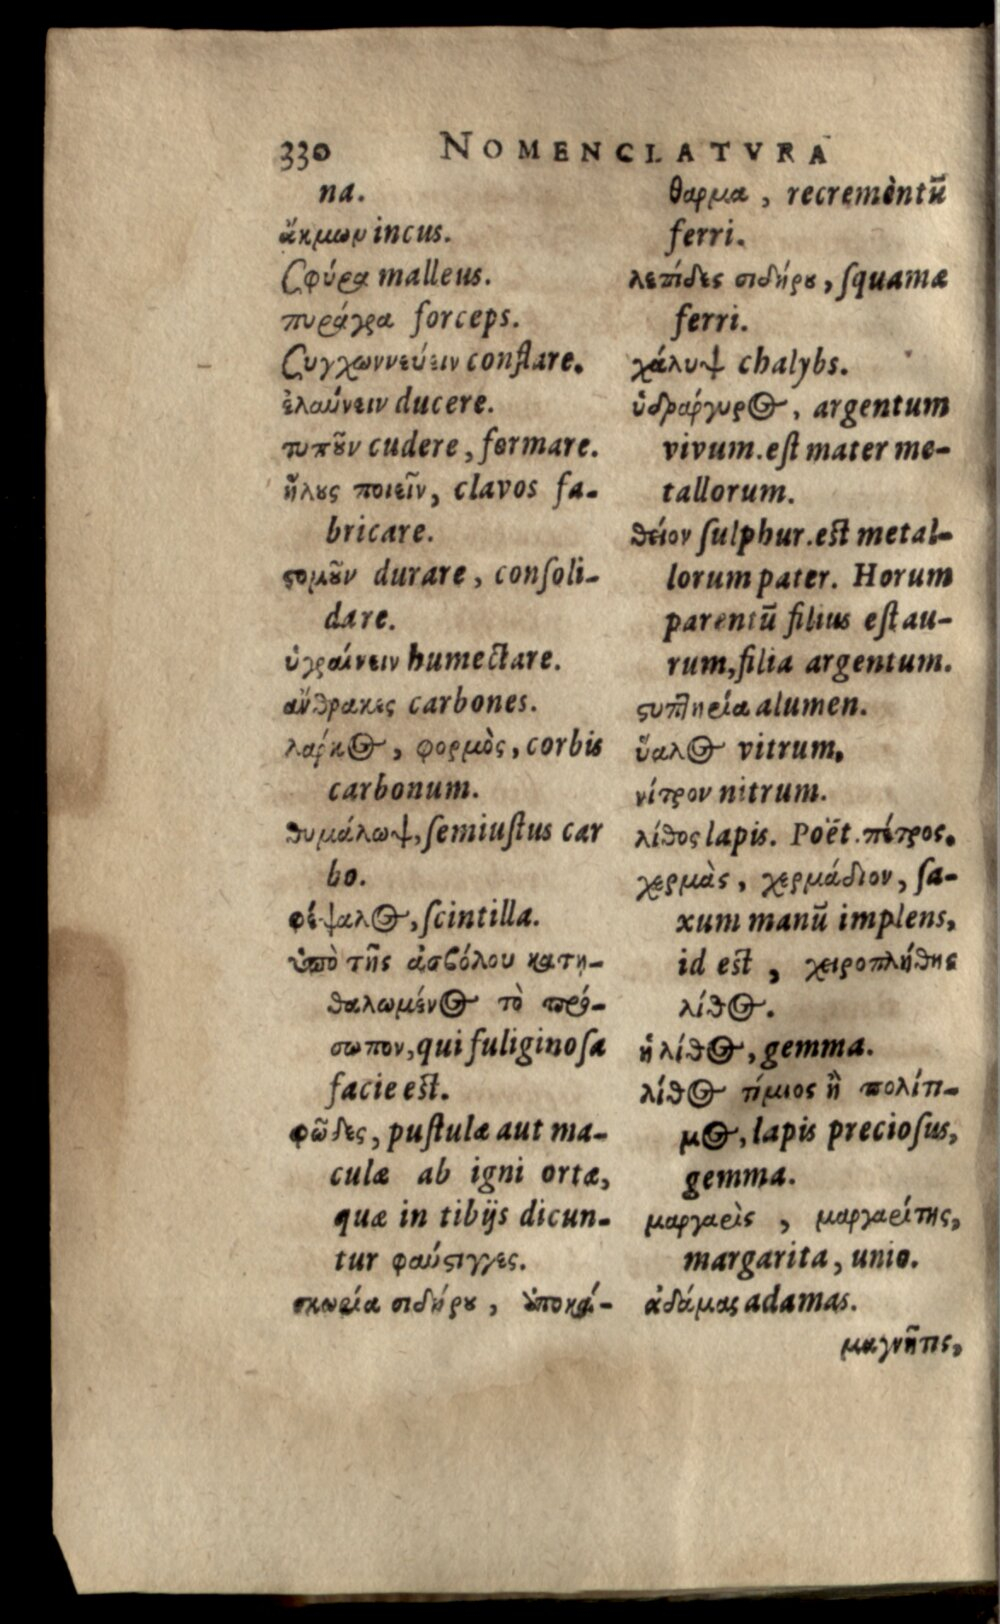 330 NOMENCLATVRA
na.
ἄκμων incus.
σφύρα malleus.
πυράγρα forceps.
συγχωννεύειν conflare.
ἐλαύνειν ducere.
τυποῦν cudere, formare.
ἥλους ποιεῖν, clavos fa-
bricare.
στομοῦν durare, consoli-
dare.
ὑγραίνειν humectare.
ἄνθρακες carbones.
λάρκος, φορμὸς, corbis
carbonum.
θυμάλωψ, semiustus car
bo.
φέψαλος, scintilla.
ὑπὸ τῆς ἀσβόλου κατη-
θαλωμένος τὸ πρό-
σωπον, qui fuliginosa
facie est.
φῶδες, pustulæ aut ma-
culæ ab igni ortæ,
quæ in tibijs dicun-
tur φαύστιγγες.
σκωρία σιδήρου, ὑποκά-
θαρμα, recremētū
ferri.
λεπίδες σιδήρου, squamæ
ferri.
χάλυψ chalybs.
ὑδράργυρος, argentum
vivum. est mater me-
tallorum.
θεῖον sulphur. est metal-
lorum pater. Horum
parentū filius est au-
rum, filia argentum.
στυπτηρία alumen.
ὕαλος vitrum.
νίτρον nitrum.
λίθος lapis. Poët. πέτρος.
χερμὰς, χερμάδιον, sa-
xum manū implens,
id est, χειροπλήθης
λίθος.
ἡ λίθος, gemma.
λίθος τίμιος ἢ πολίτι-
μος, lapis preciosus,
gemma.
μαργαρὶς, μαργαρίτης,
margarita, unio.
ἀδάμας adamas.
μαγνῆτις,